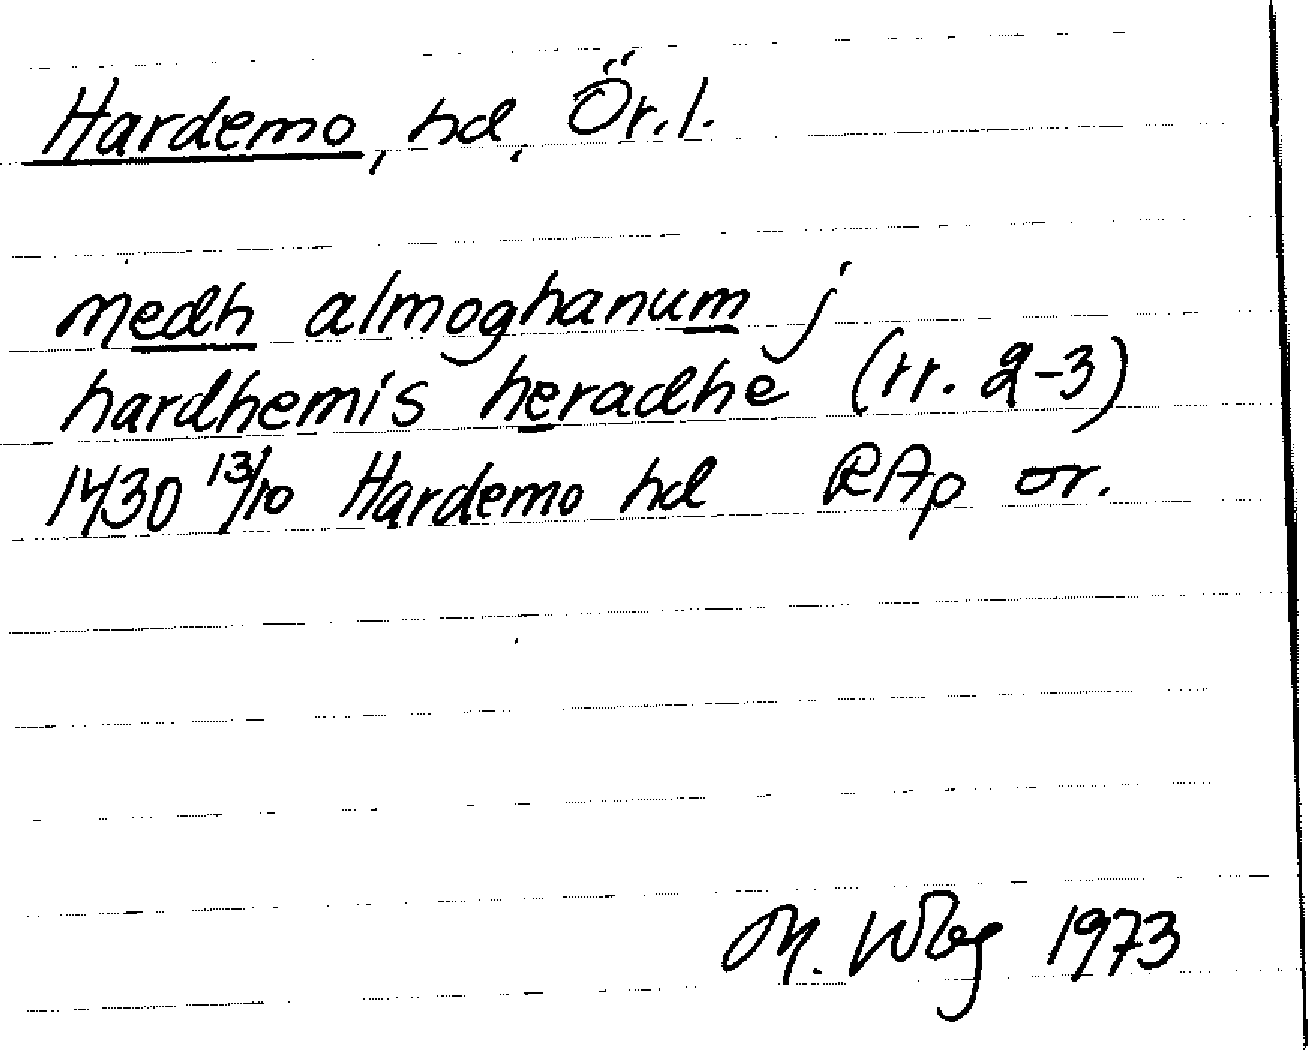 Hardemo, hd, Ör.l.
medh almoghanum j
hardhemis heradhe (rr. 2-3)
1430 13/10 Hardemo hd RAp or.
M. Wbg 1973